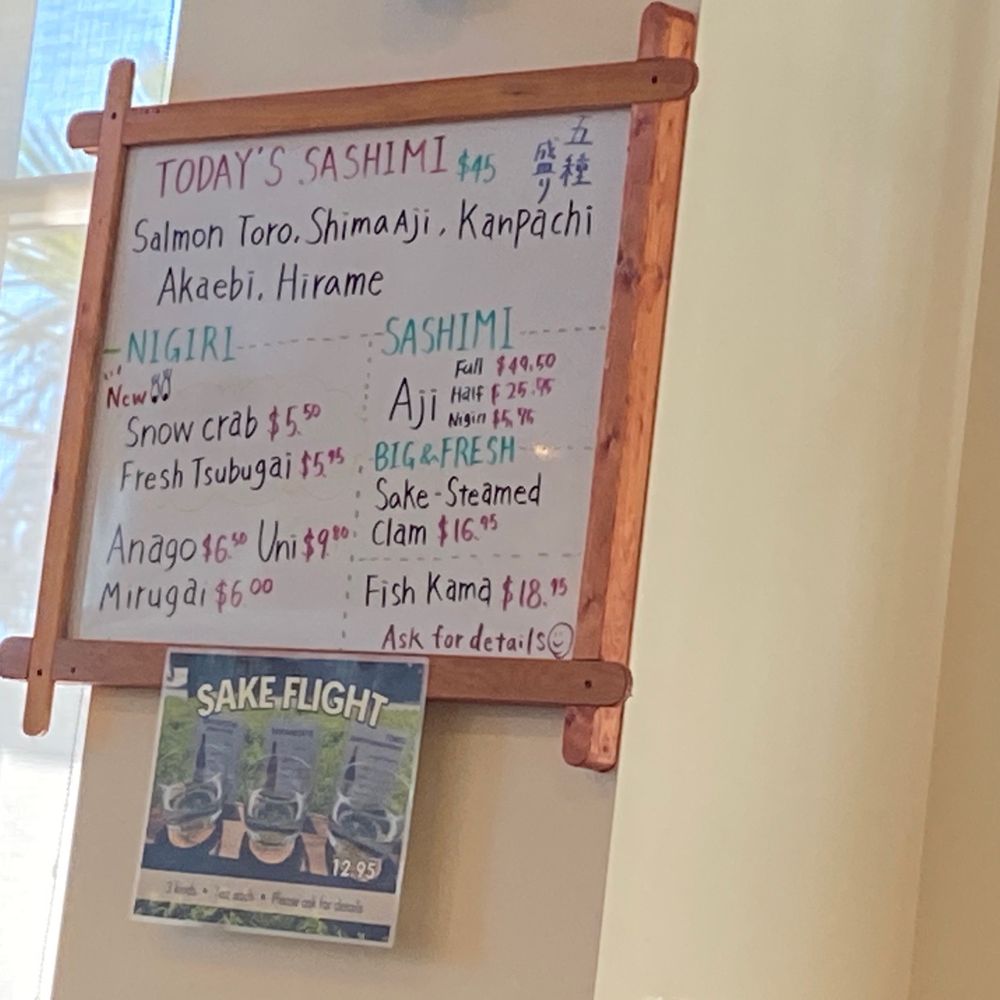 TODAY'S SASHIMI $45
五種
盛り
Salmon Toro, Shima Aji, Kanpachi
Akaebi, Hirame
NIGIRI
New
Snow crab $5.50
Fresh Tsubugai $5.95
Anago $6.50 Uni $9.80
Mirugai $6.00
SASHIMI
Aji
Full $49.50
Half $25.95
Nigiri $5.95
BIG & FRESH
Sake-Steamed
Clam $16.95
Fish Kama $18.95
Ask for details
SAKE FLIGHT
12.95
3 kinds • 1oz each • Please ask for details